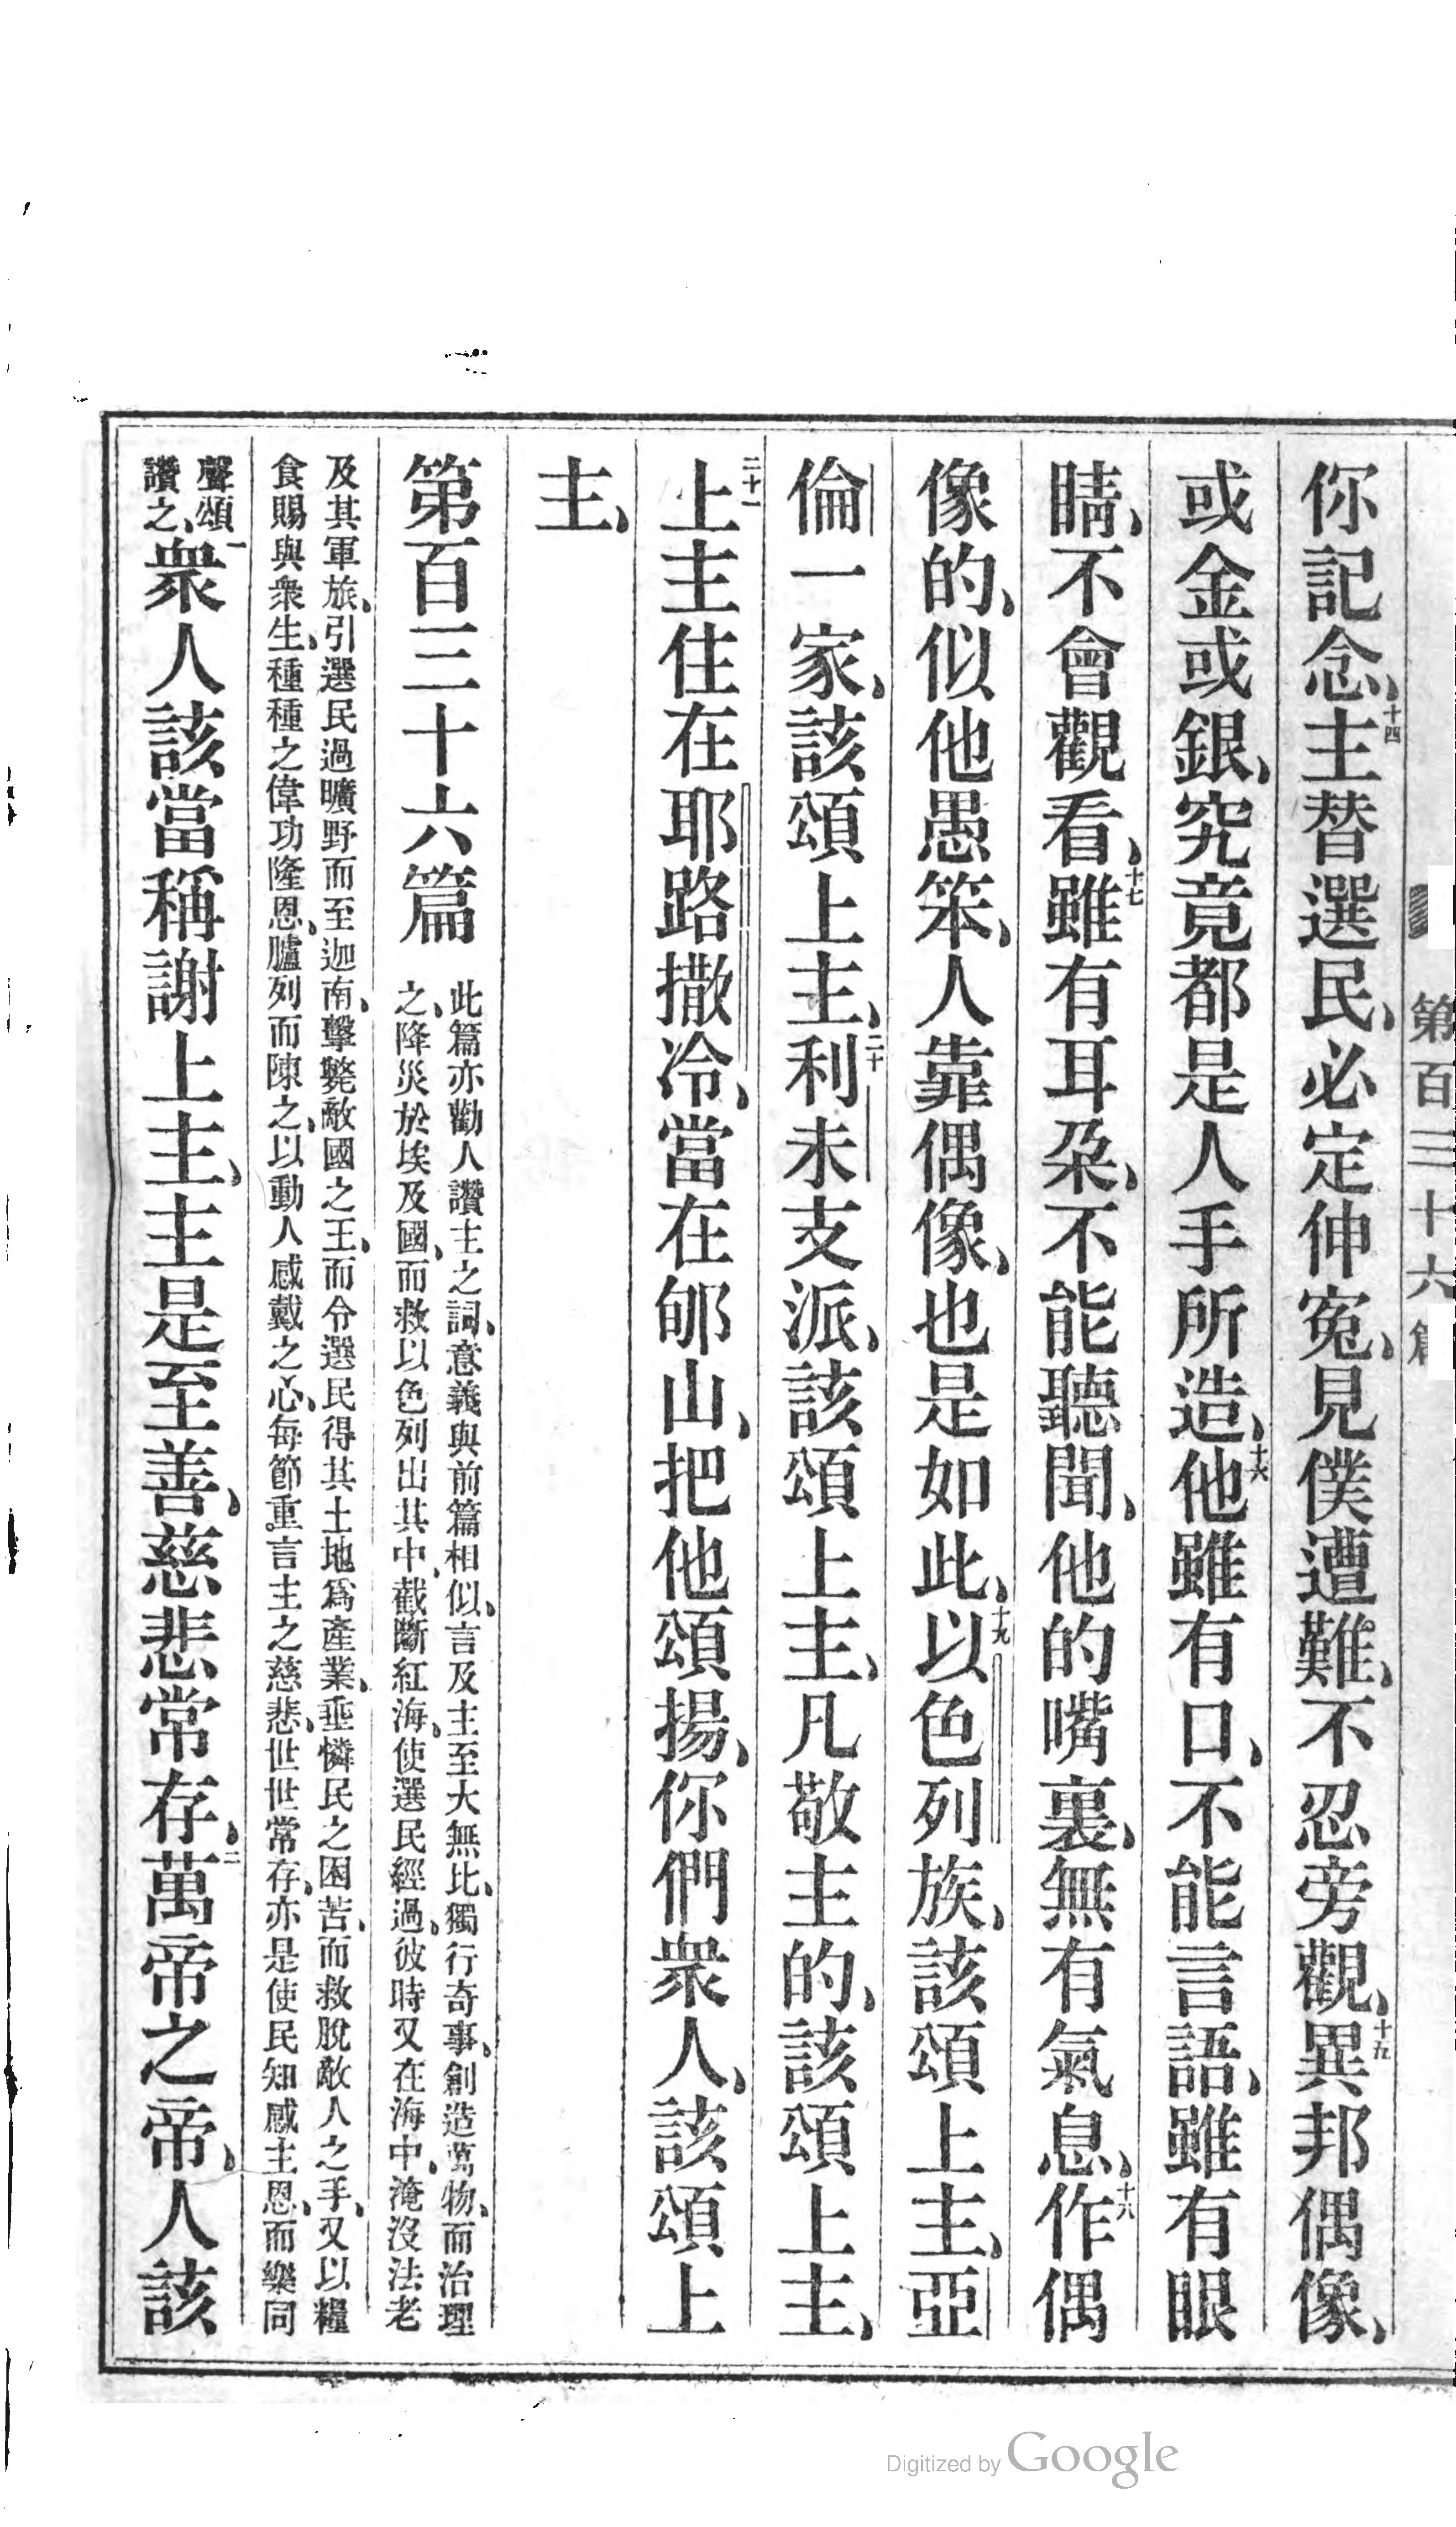 第百三十六篇
你記念、十四主替選民、必定伸寃、見僕遭難、不忍旁觀、十五異邦偶像、
或金或銀、究竟都是人手所造、十六他雖有口、不能言語、雖有眼
睛、不會觀看、十七雖有耳朶、不能聽聞、他的嘴裏、無有氣息、十八作偶
像的、似他愚笨、人靠偶像、也是如此、十九以色列族、該頌上主、亞
倫一家、該頌上主、二十利未支派、該頌上主、凡敬主的、該頌上主、
二十一上主住在耶路撒冷、當在郇山、把他頌揚、你們衆人、該頌上
主、
第百三十六篇
此篇亦勸人讚主之詞、意義與前篇相似、言及主至大無比、獨行奇事、創造萬物、而治理
之、降災於埃及國、而救以色列出其中、截斷紅海、使選民經過、彼時又在海中、淹沒法老
及其軍旅、引選民過曠野而至迦南、擊斃敵國之王、而令選民得其土地爲產業、垂憐民之困苦、而救脫敵人之手、又以糧
食賜與衆生、種種之偉功隆恩、臚列而陳之、以動人感戴之心、每節重言主之慈悲、世世常存、亦是使民知感主恩、而樂同
聲頌
讚之、
一衆人該當稱謝上主、主是至善、慈悲常存、二萬帝之帝、人該
Digitized by Google